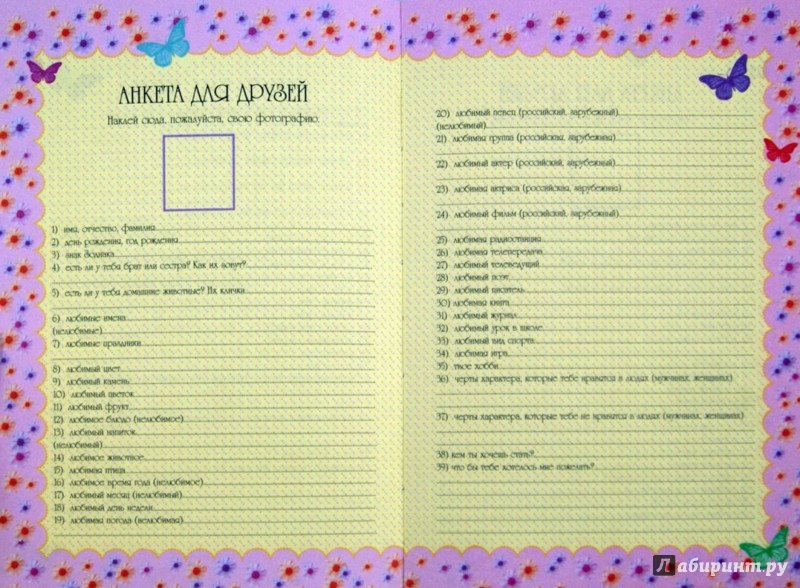 АНКЕТА ДЛЯ ДРУЗЕЙ
Наклей сюда, пожалуйста, свою фотографию.
1) имя, отчество, фамилия
2) день рождения, год рождения
3) знак Зодиака
4) есть ли у тебя брат или сестра? Как их зовут?
5) есть ли у тебя домашние животные? Их клички
6) любимые имена
(нелюбимые)
7) любимые праздники
8) любимый цвет
9) любимый камень
10) любимый цветок
11) любимый фрукт
12) любимое блюдо (нелюбимое)
13) любимый напиток
(нелюбимый)
14) любимое животное
15) любимая птица
16) любимое время года (нелюбимое)
17) любимый месяц (нелюбимый)
18) любимый день недели
19) любимая погода (нелюбимая)
20) любимый певец (российский, зарубежный)
(нелюбимый)
21) любимая группа (российская, зарубежная)
22) любимый актер (российский, зарубежный)
23) любимая актриса (российская, зарубежная)
24) любимый фильм (российский, зарубежный)
25) любимая радиостанция
26) любимая телепередача
27) любимый телеведущий
28) любимый поэт
29) любимый писатель
30) любимая книга
31) любимый журнал
32) любимый урок в школе
33) любимый вид спорта
34) любимая игра
35) твое хобби
36) черты характера, которые тебе нравятся в людях (мужчинах, женщинах)
37) черты характера, которые тебе не нравятся в людях (мужчинах, женщинах)
38) кем ты хочешь стать?
39) что бы тебе хотелось мне пожелать?
Лабиринт.ру